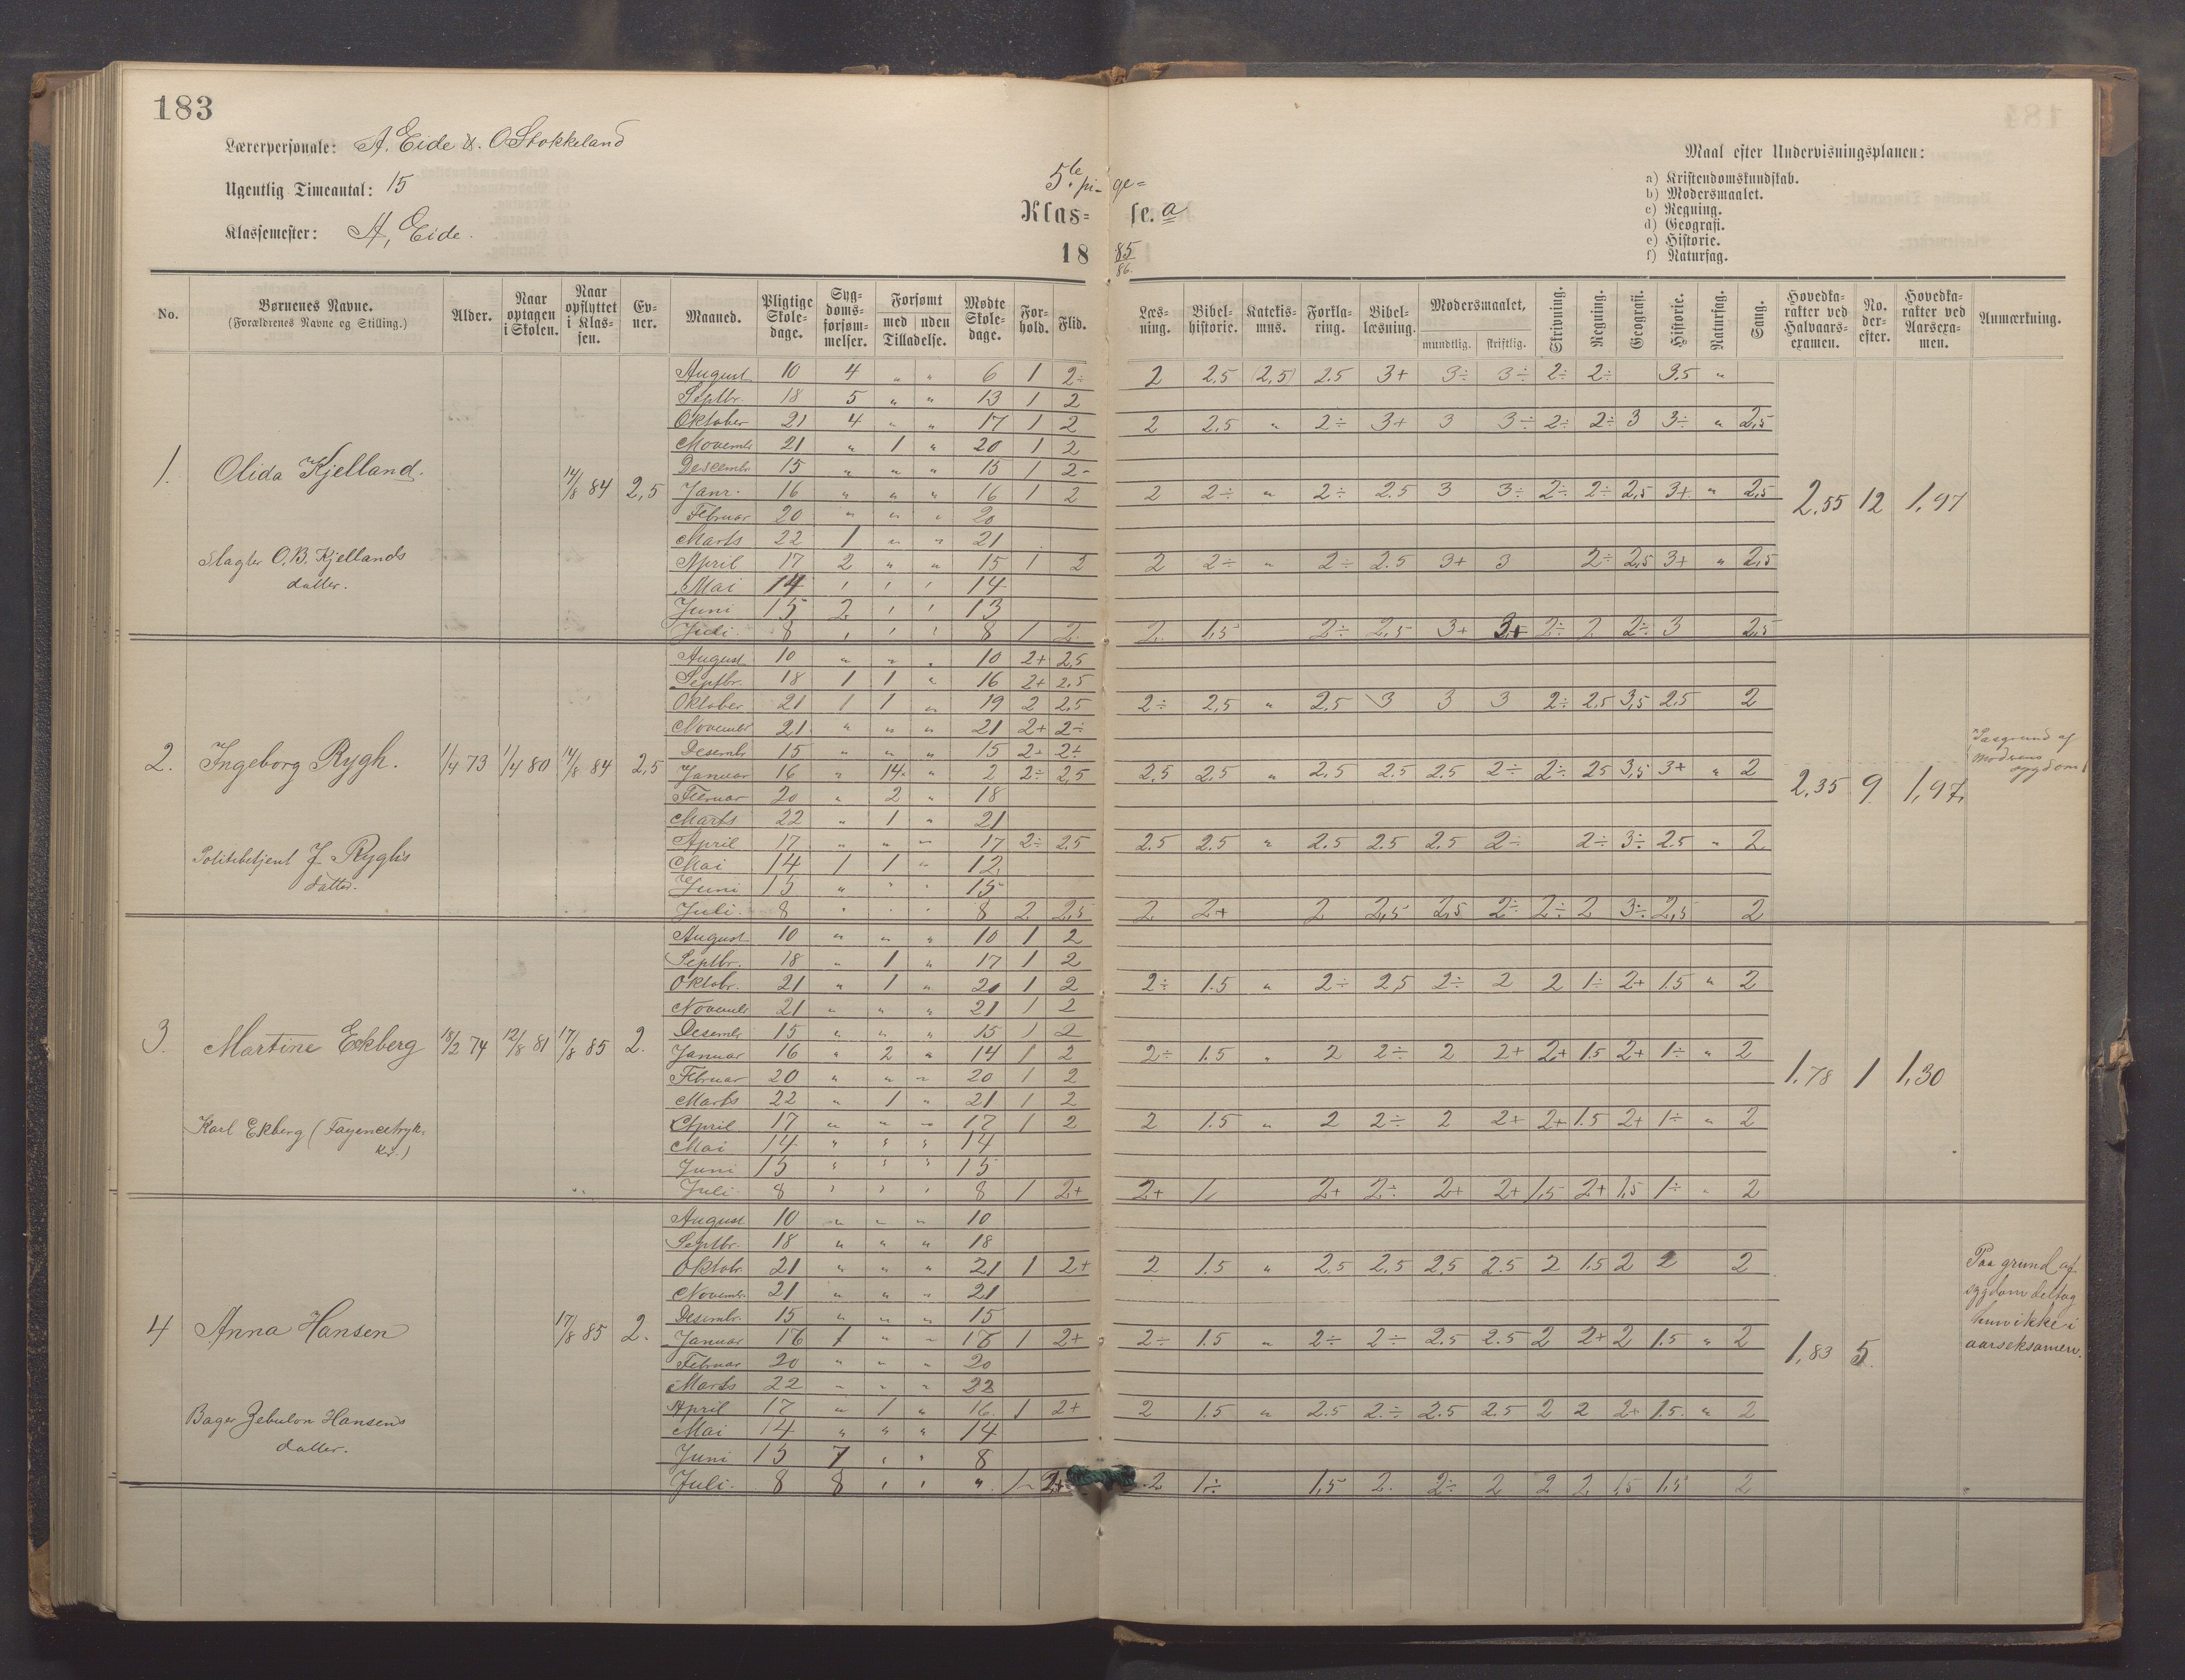 183
Lærerpersonale: A. Eide & O Stokkeland
Ugentlig Timeantal: 15
Klassemester: A. Eide.
5te pi- ge=
Klas= se. a
18 85/86.
Maal efter Undervisningsplanen:
a) Kristendomskundskab.
b) Modersmaalet.
c) Regning.
d) Geografi.
e) Historie.
f) Naturfag.
No. | Børnenes Navne. (Forældrenes Navne og Stilling.) | Alder. | Naar optagen i Skolen. | Naar opflyttet i Klas-sen. | Ev-ner. | Maaned. | Pligtige Skole-dage. | Syg-doms-forsøm-melser. | Forsømt med uden Tilladelse. | Mødte Skole-dage. | For-hold. | Flid. | Læs-ning. | Bibel-historie. | Katekis-mus. | Forkla-ring. | Bibel-læsning. | Modersmaalet, mundtlig. skriftlig. | Skrivning. | Regning. | Geografi. | Historie. | Naturfag. | Sang. | Hovedka-rakter ved Halvaars-examen. | No. der-efter. | Hovedka-rakter ved Aarsexa-men. | Anmærkning.
1. Olida Kjelland. 14/8 84 2,5
Slagter O. B. Kjellands
datter.
August 10 4 „ „ 6 1 2÷ 2 2.5 (2,5) 2.5 3+ 3÷ 3÷ 2÷ 2÷ 3.5 „
Septbr. 18 5 „ „ 13 1 2
Oktober 21 4 „ „ 17 1 2 2 2.5 „ 2÷ 3+ 3 3÷ 2÷ 2÷ 3 3÷ „ 2,5
Novembr 21 „ 1 „ 20 1 2
Descembr 15 „ „ „ 15 1 2-
Janr. 16 „ „ „ 16 1 2 2 2÷ „ 2÷ 2.5 3 3÷ 2÷ 2÷ 2,5 3+ „ 2,5
Februar 20 „ „ „ 20
Marts 22 1 „ „ 21
April 17 2 „ „ 15 1 2 2 2÷ „ 2÷ 2.5 3+ 3 2÷ 2,5 3+ „ 2,5
Mai 14 ' ' ' 14
Juni 15 2 ' ' 13
Juli 8 ' ' ' 8 1 2 2. 1,5 2÷ 2,5 3+ 3+ 2÷ 2 2÷ 3 2,5
2.55 12 1,97
2. Ingeborg Rygh. 1/4 73 1/4 80 14/8 84 2,5
Politibetjent J. Ryghs
datter.
August 10 „ „ „ 10 2+ 2,5
Septbr. 18 1 1 „ 16 2+ 2.5
Oktober 21 1 1 „ 19 2 2,5 2÷ 2,5 „ 2.5 3 3 3 2÷ 2.5 3,5 2.5 2
Novembr 21 „ „ „ 21 2+ 2÷
Desembr 15 „ „ „ 15 2÷ 2÷
Januar 16 „ 14 „ 2 2÷ 2,5 2,5 2.5 „ 2,5 2.5 2.5 2÷ 2÷ 25 3,5 3+ „ 2
Februar 20 „ 2 „ 18
Marts 22 „ 1 „ 21
April 17 „ „ „ 17 2÷ 2.5 2.5 2.5 „ 2.5 2.5 2.5 2÷ 2÷ 3÷ 2.5 „ 2
Mai 14 1 1 „ 12
Juni 15 „ „ „ 15
Juli. 8 ' ' ' 8 2 2,5 2 2+ 2 2,5 2,5 2÷ 2÷ 2 3÷ 2,5 2
2,35 9. 1,97.
Paagrund af
Moderens
sygdom
3. Martine Eckberg 18/2 74 12/8 81 17/8 85 2.
Karl Ekberg (Fayencetryk-
ker.)
August 10 „ „ „ 10 1 2
Septbr. 18 „ 1 „ 17 1 2
Oktobr. 21 „ 1 „ 20 1 2 2÷ 1.5 „ 2÷ 2,5 2÷ 2 2 1÷ 2+ 1.5 „ 2
Novembr 21 „ „ „ 21 1 2
Desembr 15 „ „ „ 15 1 2
Januar 16 „ 2 „ 14 1 2 2÷ 1.5 „ 2 2÷ 2 2+ 2+ 1.5 2+ 1÷ „ 2
Februar 20 „ „ „ 20 1 2
Marts 22 „ 1 „ 21 1 2
April 17 „ „ „ 17 1 2 2 1.5 „ 2 2÷ 2 2+ 2+ 1.5 2+ 1÷ „ 2
Mai 14 „ „ „ 14
Juni 15 „ „ „ 15
Juli 8 ' ' ' 8 1 2+ 2+ 1, 2+ 2÷ 2+ 2+ 1,5 2+ 1,5 1÷ „ 2
1.78 1 1,30
4 Anna Hansen 17/8 85 2.
Bager Zebulon Hansens
datter.
August 10 „ „ „ 10
Septbr. 18 „ „ „ 18
Oktobr 21 „ „ „ 21 1 2+ 2 1.5 „ 2.5 2.5 2.5 2.5 2 1.5 2 2 2
Novembr. 21 „ „ „ 21
Desembr. 15 „ „ „ 15
Januar 16 1 „ „ 16 1 2+ 2÷ 1.5 „ 2÷ 2÷ 2.5 2.5 2 2+ 2 1.5 „ 2
Februar 20 „ „ „ 20
Marts 22 „ „ „ 22
April 17 „ 1 „ 16 1 2+ 2 1.5 „ 2.5 2.÷ 2.5 2.5 2 2 2+ 1.5. „ 2
Mai 14 „ „ „ 14
Juni 15 7 ' ' 8
Juli. 8 8 ' ' „ 1 2+ 2 1÷ 1,5 2. 2÷ 2 2 2. 1,5 1,5 2
1,83 5.
Paa grund af
sygdom deltog
hun ikke i
aarseksamen.